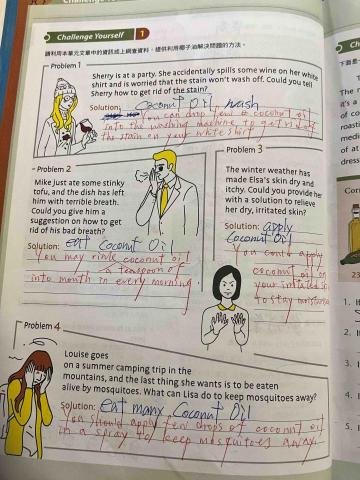 Challenge Yourself 1
請利用本單元文章中的資訊或上網查資料，提供利用椰子油解決問題的方法。
Problem 1
Sherry is at a party. She accidentally spills some wine on her white
shirt and is worried that the stain won't wash off. Could you tell
Sherry how to get rid of the stain?
Solution: Coconut Oil, wash
You can drop few coconut oil
into the washing machine to get rid of
the stain on your white shirt
Problem 2
Mike just ate some stinky
tofu, and the dish has left
him with terrible breath.
Could you give him a
suggestion on how to get
rid of his bad breath?
Solution: eat Coconut Oil
You may rinse coconut oil
a teaspoon of
into mouth in every morning
Problem 3
The winter weather has
made Elsa's skin dry and
itchy. Could you provide her
with a solution to relieve
her dry, irritated skin?
Solution: apply
Coconut Oil
You could apply
coconut oil on
your irritated
to stay moisturized
Problem 4
Louise goes
on a summer camping trip in the
mountains, and the last thing she wants is to be eaten
alive by mosquitoes. What can Lisa do to keep mosquitoes away?
Solution: eat many Coconut Oil
You should apply few drops of coconut oil
in a spray to keep mosquitoes away.